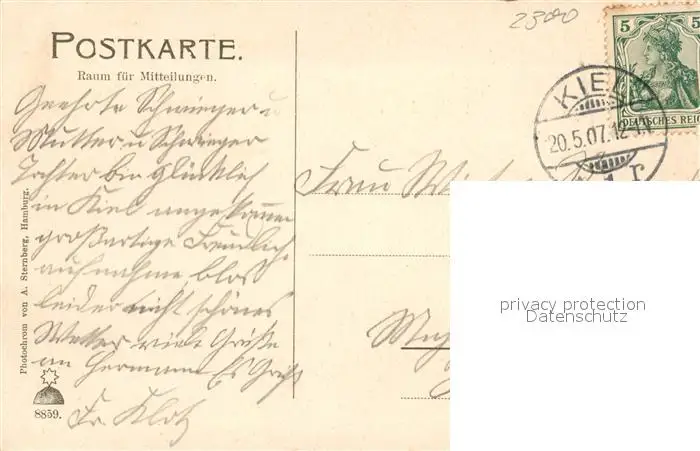 2300
POSTKARTE.
Raum für Mitteilungen.
Geehrte Schwieger u
Mutter u Schwieger
Tochter bin Glücklich
in Kiel angekommen
großartige Freundlich
aufnahme, blos
leider nicht schönes
Wetter viele Grüße
an Hermann Es Grüßt
Fr. Klotz
Photochrom von A. Sternberg, Hamburg.
8859.
5 5
DEUTSCHES REICH
KIEL
20.5.07.12
1 r
Frau
privacy protection
Datenschutz